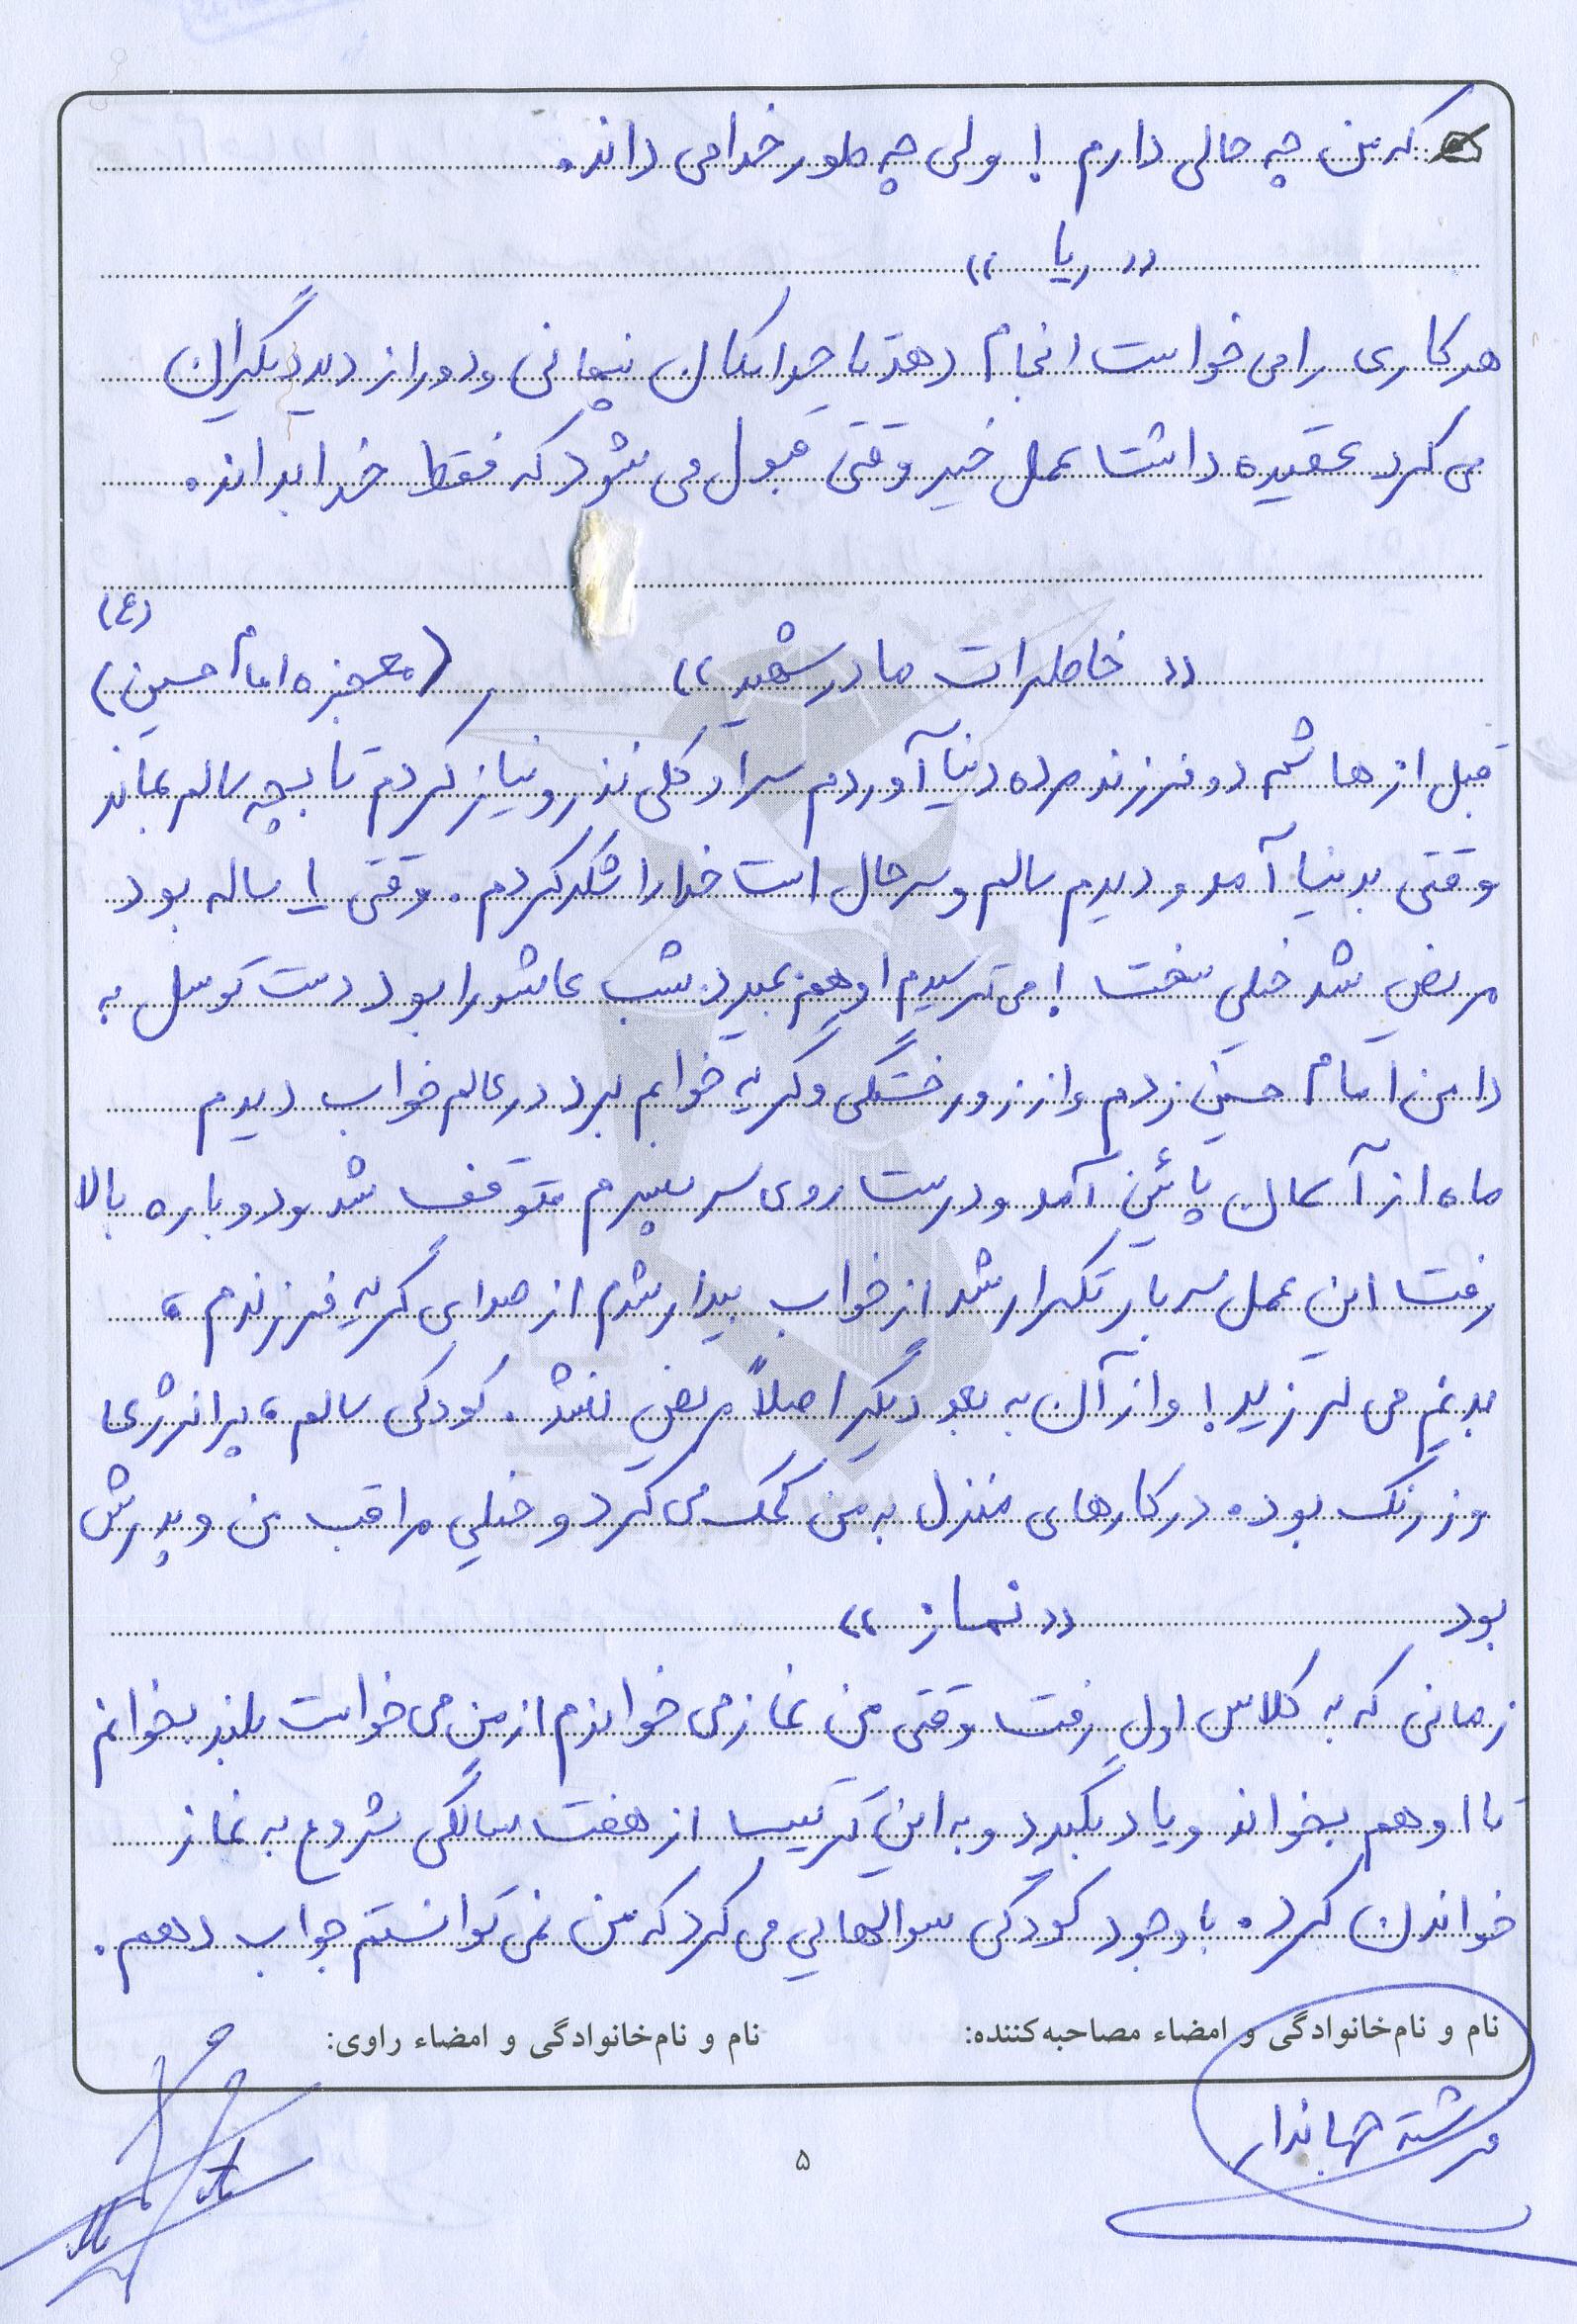 که من چه حالی دارم ! ولی چه طور خدا می داند.
«ریا»
هر کاری را می خواست انجام دهد تا حد امکان پنهانی و دور از دید دیگران
می کرد عقیده داشت عمل خیر وقتی قبول می شود که فقط خدا بداند.
«خاطرات مادر شهید» (معجزه امام حسین (ع))
قبل از هاشم دو فرزند مرده دنیا آوردم سر او کلی نذر و نیاز کردم تا بچه سالم بماند
وقتی بدنیا آمد و دیدم سالم و سرحال است خدا را شکر کردم. وقتی ۱ ساله بود
مریض شد خیلی سخت ! می ترسیدم او هم بمیرد. شب عاشورا بود دست توسل به
دامن امام حسین زدم و از زور خستگی و گریه خوابم برد در عالم خواب دیدم
ماه از آسمان پائین آمد و درست روی سر پسرم متوقف شد و دوباره بالا
رفت این عمل سه بار تکرار شد از خواب بیدار شدم از صدای گریه فرزندم،
بدنم می لرزید! و از آن به بعد دیگر اصلاً مریض نشد. کودکی سالم، پر انرژی
و زرنگ بود. در کارهای منزل به من کمک می کرد و خیلی مراقب من و پدرش
بود «نماز»
زمانی که به کلاس اول رفت وقتی من نماز می خواندم از من می خواست بلند بخوانم
تا او هم بخواند و یاد بگیرد و به این ترتیب از هفت سالگی شروع به نماز
خواندن کرد. با وجود کودکی سوالهایی می کرد که من نمی توانستم جواب دهم.
نام و نام‌خانوادگی و امضاء مصاحبه‌کننده: نام و نام‌خانوادگی و امضاء راوی:
فرشته جهاندار
۵